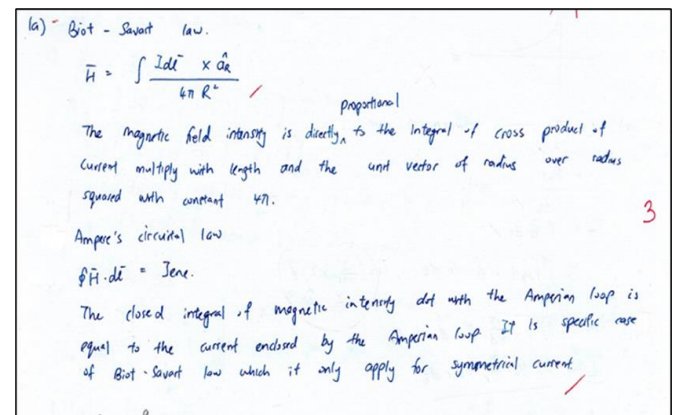 1a) Biot - Savart law.
H̄ = ∫ Idl̄ × âR / 4π R²
proportional
The magnetic field intensity is directly ^ to the Integral of cross product of
current multiply with length and the unit vector of radius over radius
squared with constant 4π.
3
Ampere's circuital law
∮H̄·dl̄ = Ienc.
The closed integral of magnetic intensity dot with the Amperian loop is
equal to the current enclosed by the Amperian loop. It is specific case
of Biot-Savart law which it only apply for symmetrical current.